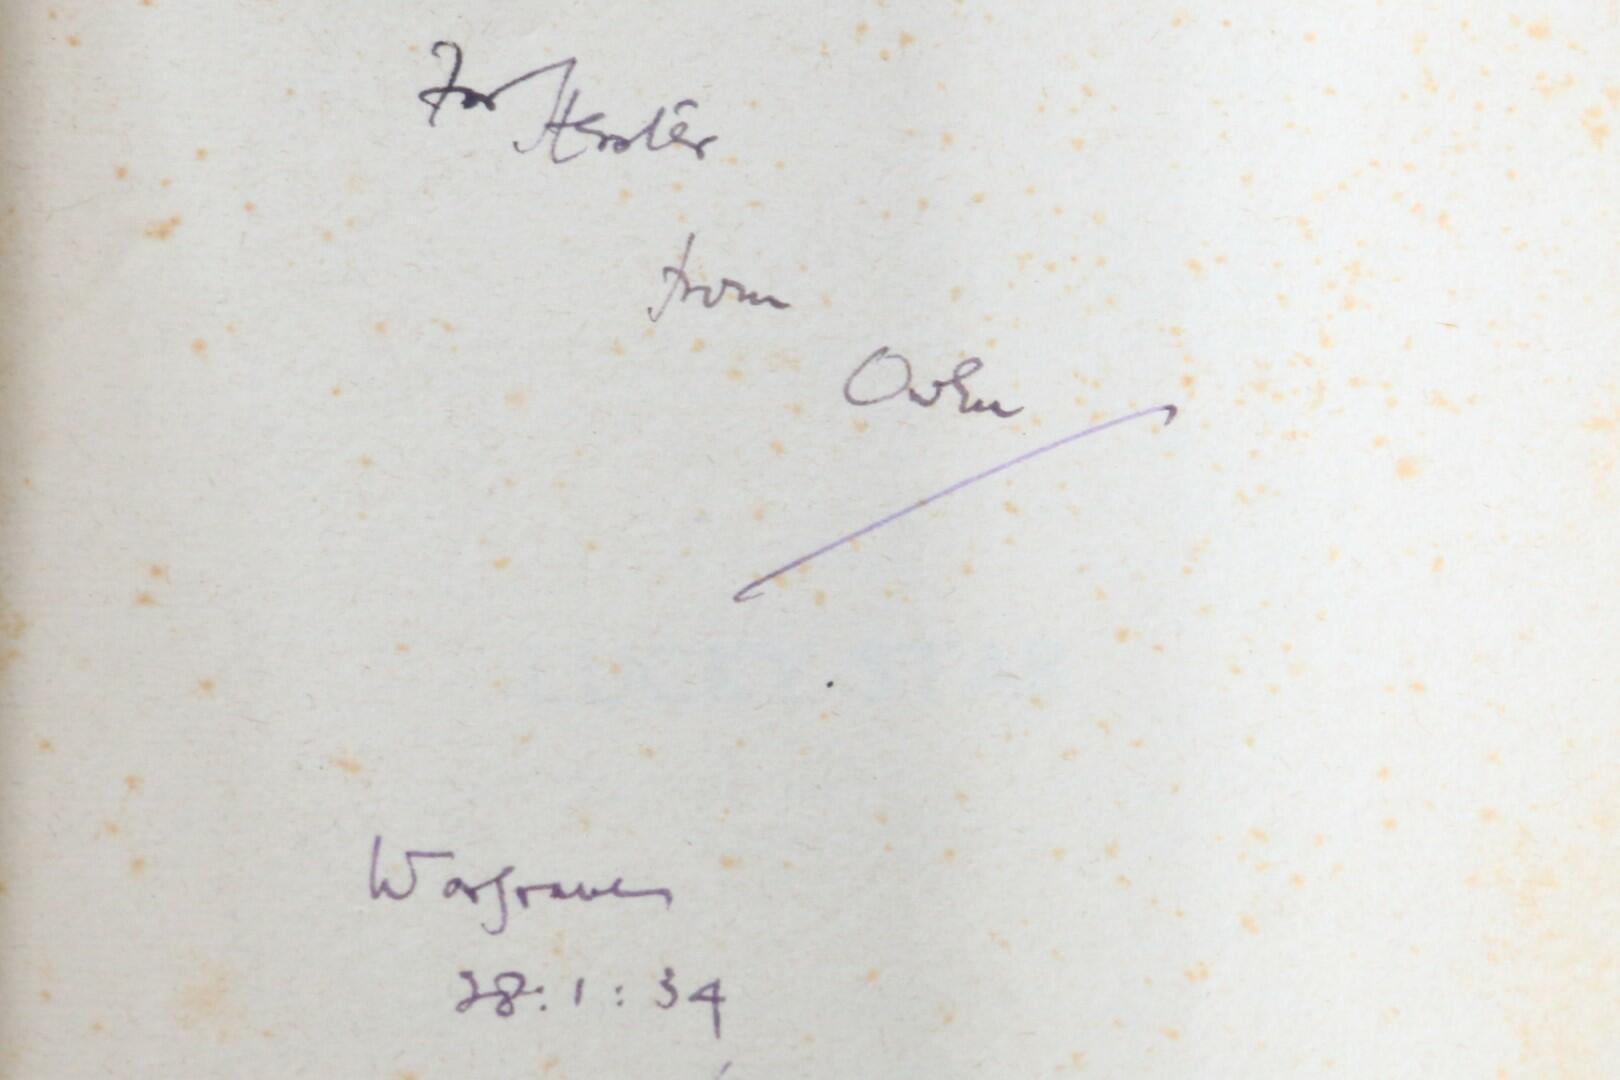 For Hester
from
Owen
Wargrave
28:1:34